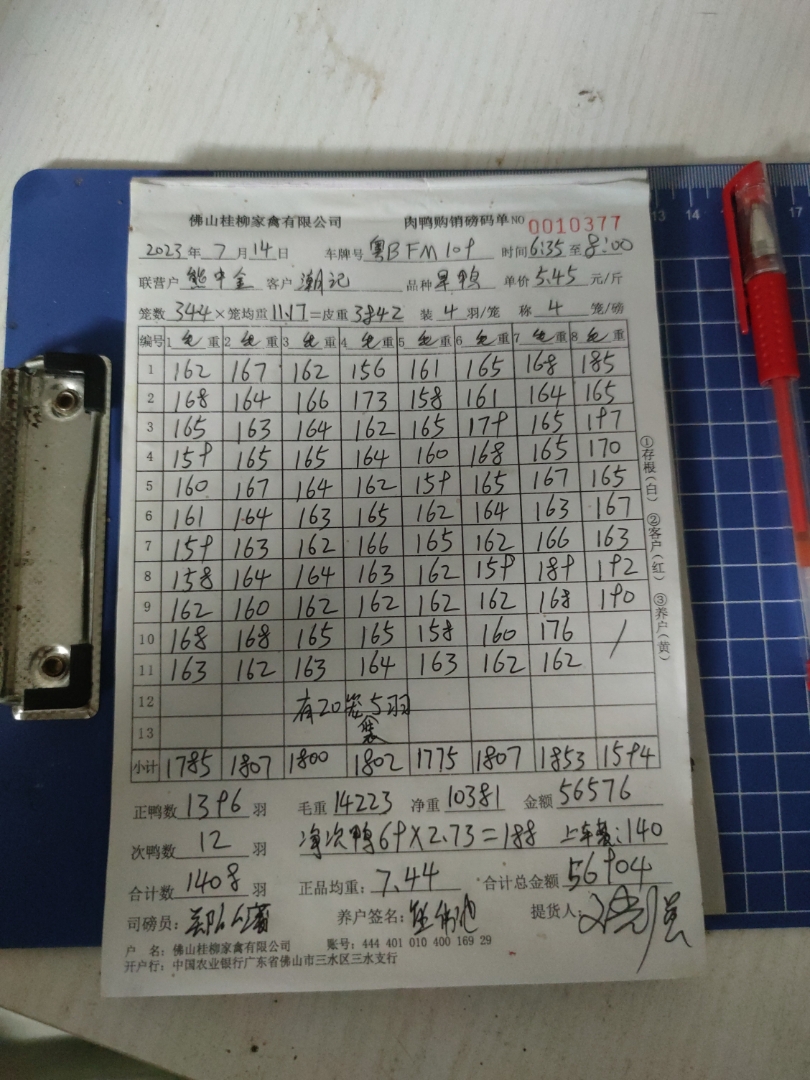 佛山桂柳家禽有限公司 肉鸭购销磅码单 NO 0010377
2023年 7月 14日 车牌号 粤BFM109 时间 6:35 至 8:00
联营户 熊中金 客户 潮记 品种 旱鸭 单价 5.45 元/斤
笼数 344 × 笼均重 11.17 = 皮重 3842 装 4 羽/笼 称 4 笼/磅
编号 1 毛重 2 毛重 3 毛重 4 毛重 5 毛重 6 毛重 7 毛重 8 毛重
1 162 167 162 156 161 165 168 185
2 168 164 166 173 158 161 164 165
3 165 163 164 162 165 179 165 197
4 159 165 165 164 160 168 165 170
5 160 167 164 162 159 165 167 165
6 161 164 163 165 162 164 163 167
7 159 163 162 166 165 162 166 163
8 158 164 164 163 162 159 189 192
9 162 160 162 162 162 162 168 190
10 168 168 165 165 158 160 176 /
11 163 162 163 164 163 162 162
12 有20笼5羽
13 装
小计 1785 1807 1800 1802 1775 1807 1853 1594
①存根(白) ②客户(红) ③养户(黄)
正鸭数 1396 羽 毛重 14223 净重 10381 金额 56576
次鸭数 12 羽 净次鸭69×2.73=188 上车费:140
合计数 1408 羽 正品均重: 7.44 合计总金额 56904
司磅员: 养户签名: 提货人:
户 名: 佛山桂柳家禽有限公司 账号: 444 401 010 400 169 29
开户行: 中国农业银行广东省佛山市三水区三水支行
13 14 17